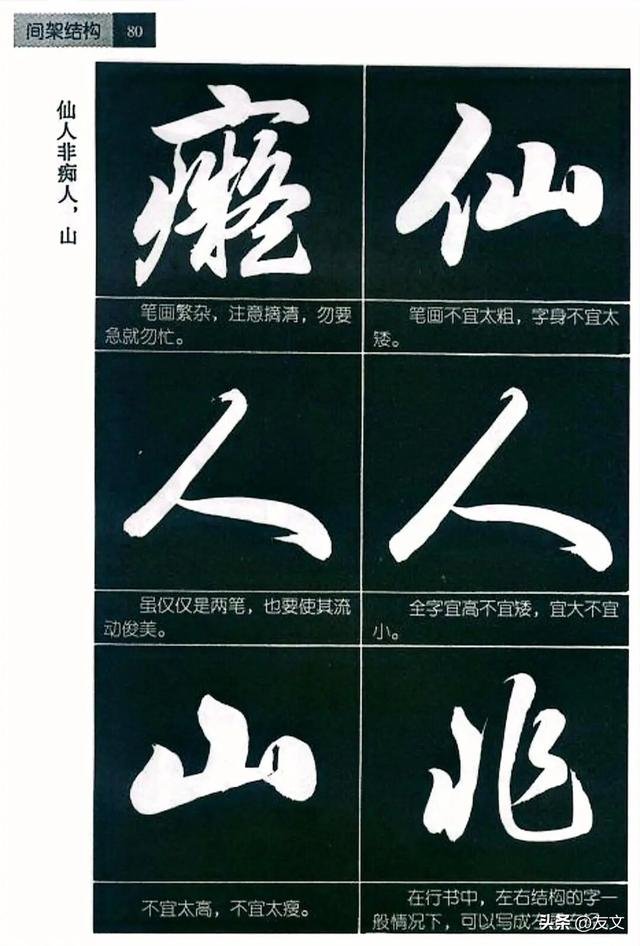 间架结构 80
仙人非痴人，山
仙
笔画不宜太粗，字身不宜太
矮。
人
全字宜高不宜矮，宜大不宜
小。
非
在行书中，左右结构的字一
般情况下，可以写成左
癡
笔画繁杂，注意摘清，勿要
急就勿忙。
人
虽仅仅是两笔，也要使其流
动俊美。
山
不宜太高，不宜太瘦。
头条 @友文